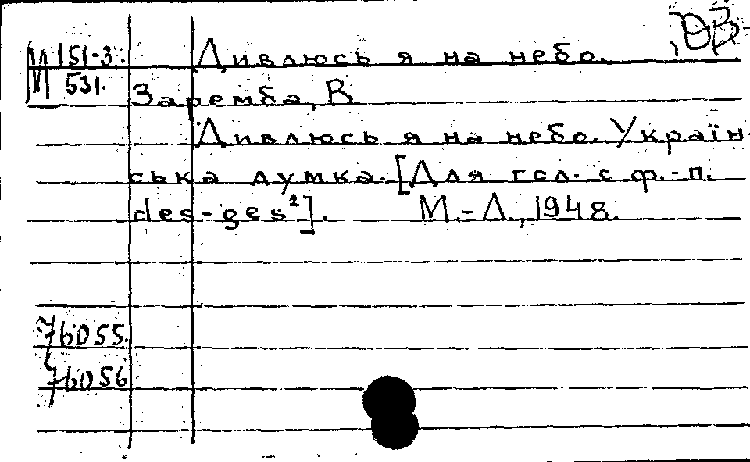 М 151-3. Дивлюсь я на небо.
531. Заремба, В.
Дивлюсь я на небо. Україн-
ська думка. [Для гол. с ф.-п.
des-ges²]. М.-Л., 1948.
76055.
76056